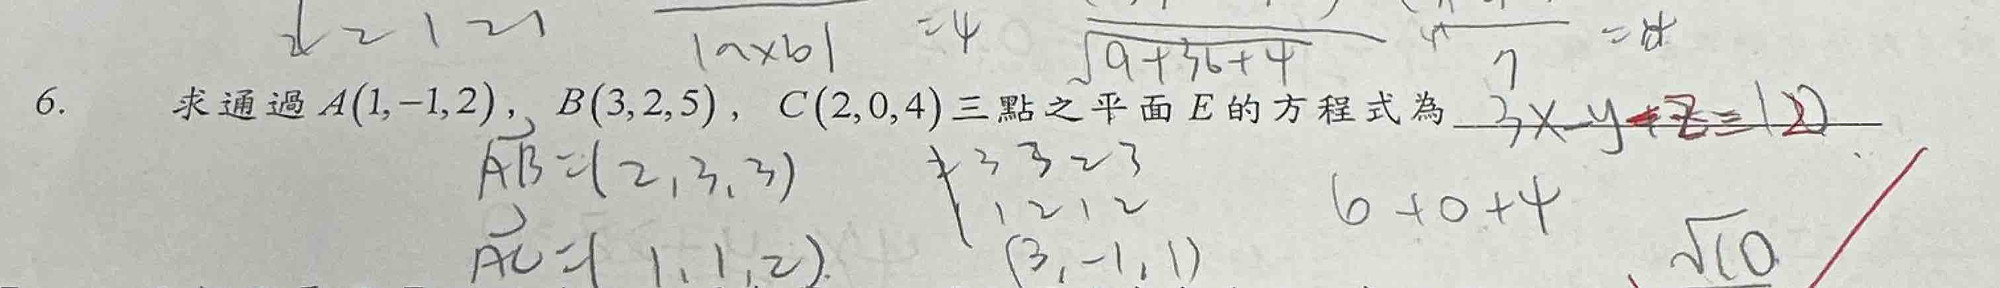 |a×b| =4 √9+36+4 7
6. 求通過 A(1,−1,2), B(3,2,5), C(2,0,4) 三點之平面 E 的方程式為 3x-y+z=
AB=(2,3,3) 3 3 2 3 6+0+4
1 2 1 2
AC=(1,1,2) (3,-1,1) √10